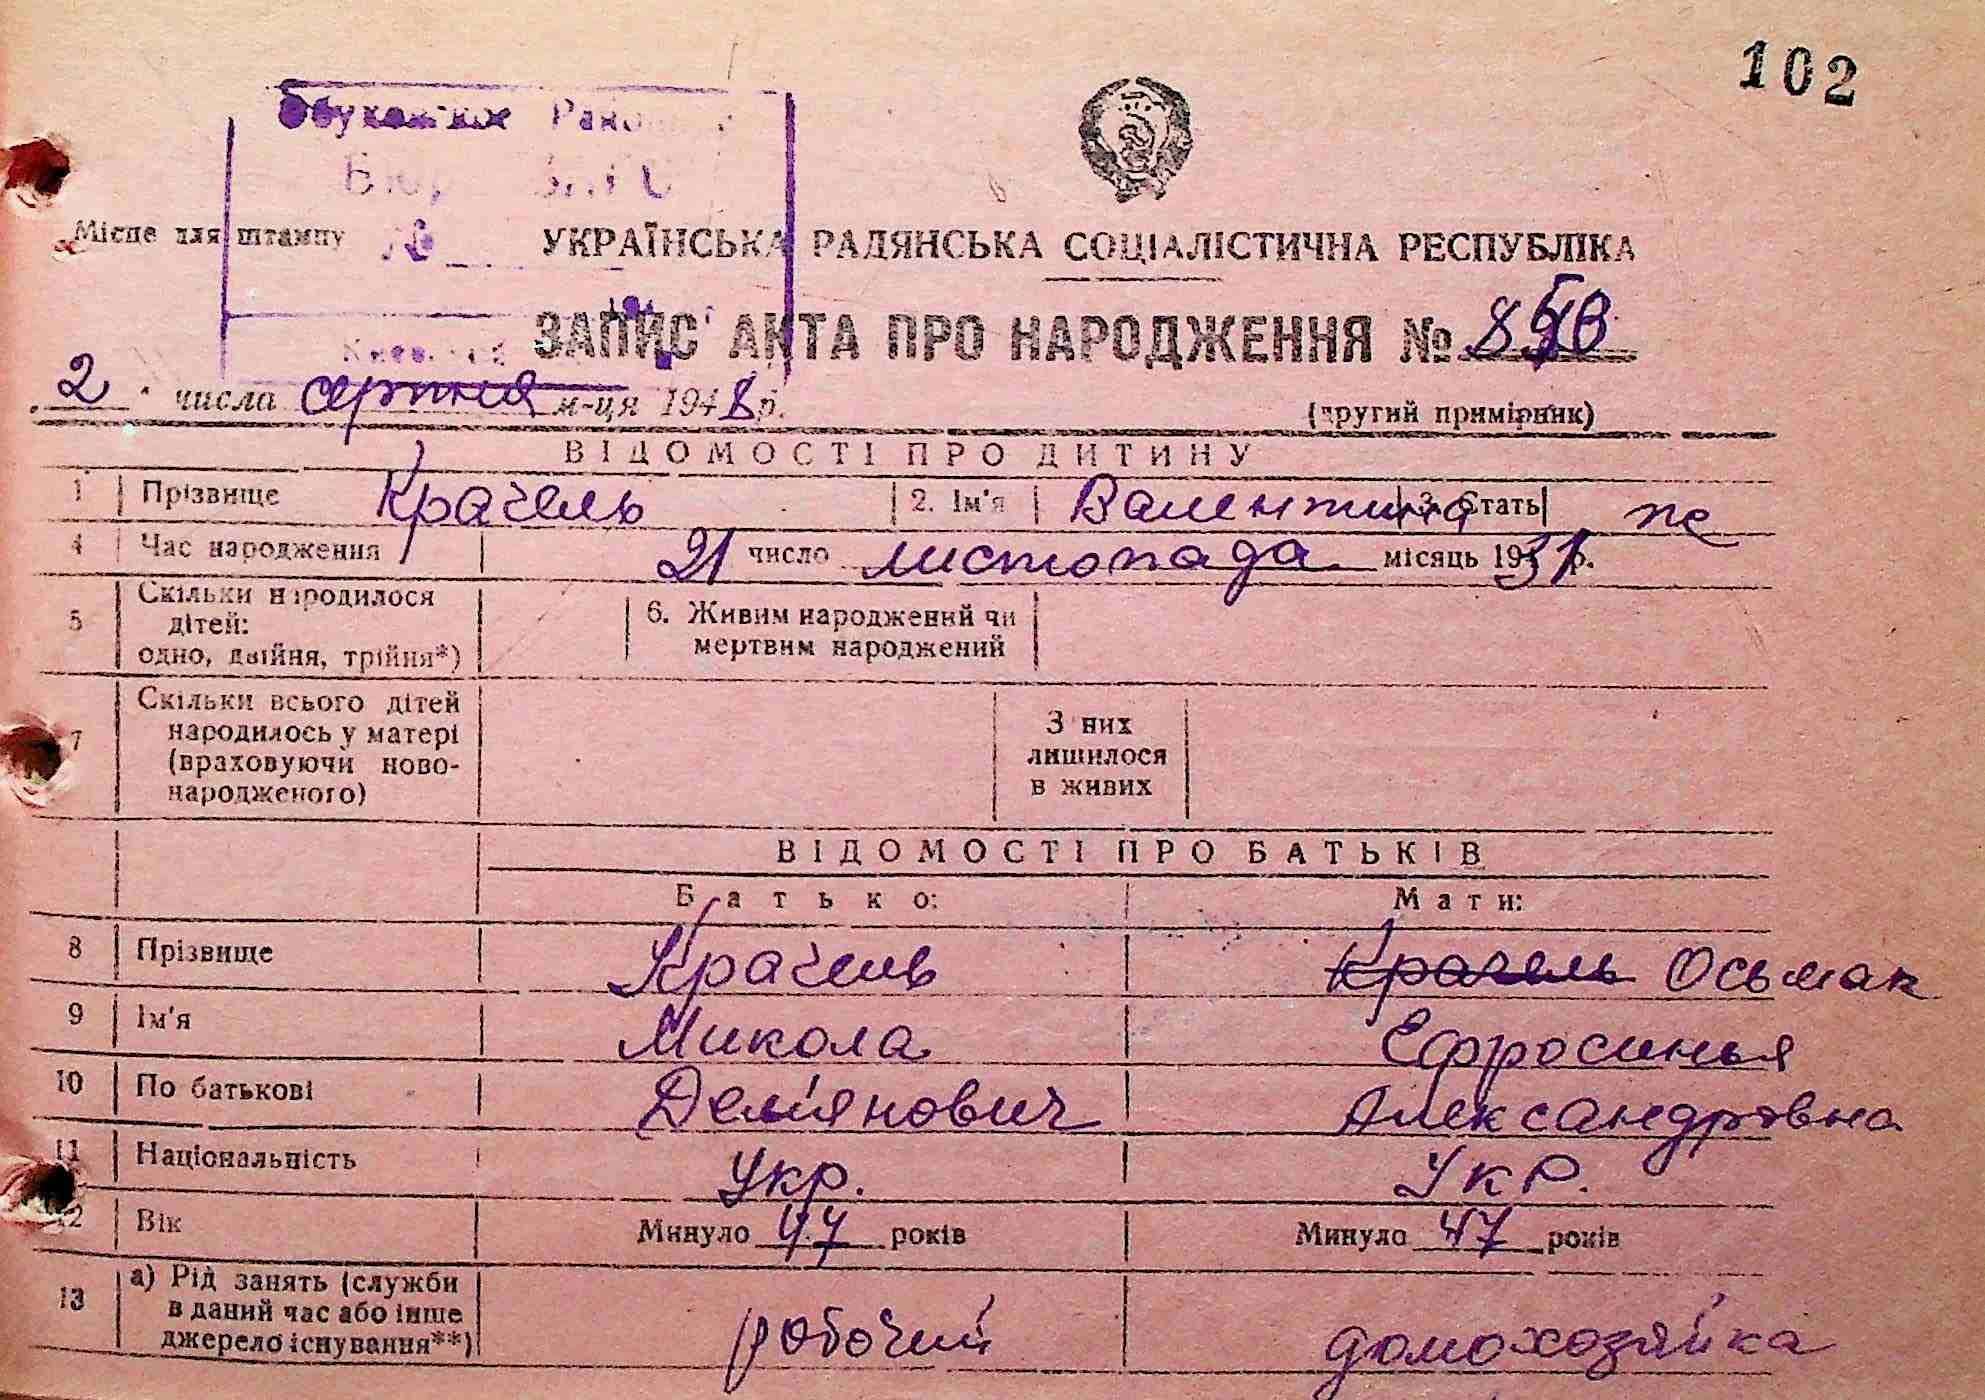 102
Місце для штампу
УКРАЇНСЬКА РАДЯНСЬКА СОЦІАЛІСТИЧНА РЕСПУБЛІКА
ЗАПИС АКТА ПРО НАРОДЖЕННЯ №
2 числа серпня м-ця 1948 р.
(другий примірник)
ВІДОМОСТІ ПРО ДИТИНУ
1 Прізвище Крачель 2. Ім'я Валентина 3. Стать же
4 Час народження 21 число листопада місяць 1931 р.
5 Скільки народилося
дітей:
одно, двійня, трійня*)
6. Живим народжений чи
мертвим народжений
7 Скільки всього дітей
народилось у матері
(враховуючи ново-
народженого)
З них
лишилося
в живих
ВІДОМОСТІ ПРО БАТЬКІВ
Батько: Мати:
8 Прізвище Крачель Крачель Осьмак
9 Ім'я Микола Ефросинья
10 По батькові Дем'янович Александровна
11 Національність Укр. Укр.
12 Вік Минуло 47 років Минуло 47 років
13 а) Рід занять (служби
в даний час або інше
джерело існування**)
робочий домохозяйка